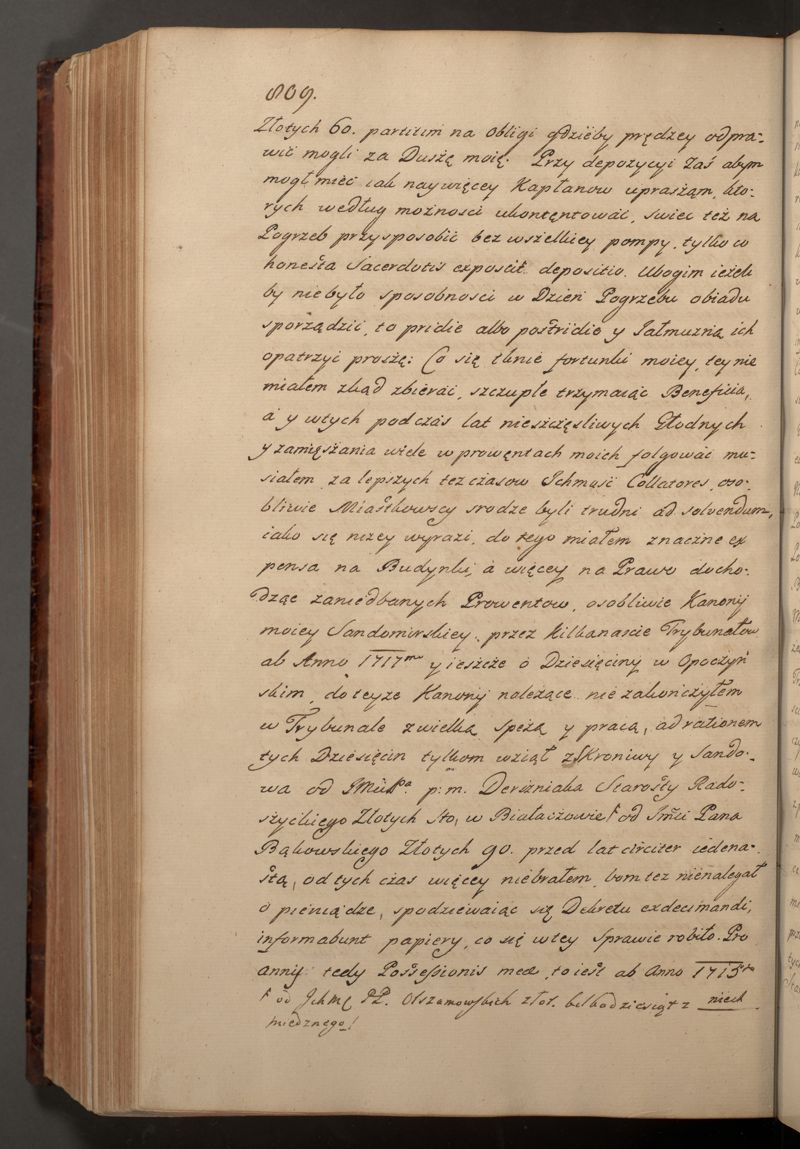 809.
Złotych 60. partitim na obligi gdzieby prędzey odpra-
wić mogli za Duszę moię. Przy depozycyi Zaś abym
mogł mieć iak naywięcey Kapłanow upraszam, kto-
rych według możnosci ukontentować, swiec też na
Pogrzeb przysposobić bez wszelkiey pompy, tylko w
honesta Sacerdotis exposcit depositio. Ubogim ieżeli
by niebyło sposobnosci w Dzień Pogrzebu obiadu
sporządzić, to pridie albo postridie y Jałmużną ich
opatrzyi proszę: Co się tknie fortunki moiey, tey nie
miałem zkąd zbierać, szczupłe trzymaiąc Beneficia,
a y wtych podczas lat nieszczęsliwych Głodnych
y zamięszania wiele w prowentach moich folgować mu-
siałem, za lepszych też czasow Ichmość Collatores, oso-
bliwie Miastkowscy srodze byli trudni ad solvendum,
iako się niżey wyrazi, do tego miałem znaczne ex
pensa na Budynki, á więcey na Prawo docho-
dząc zaniedbanych Prowentow, osobliwie Kanonij
moiey Sandomirskiey, przez kilkanascie Trybunałow
ab Anno 1717mo y ieszcze o Dziesięciny w Opoczyń
skim, do teyże Kanonij należące nie zakończyłem
w Trybunale z wielką speżą y pracą, ad rationem
tych Dziesięcin tylkom wziął z Skroniwy y Sando-
wa od JMci Pa. p: m. Dersniaka Starosty Rado-
szyckiego Złotych sto, w Białaczowie od Jmci Pana
Bąkowskiego Złotych 90. przed lat circiter iedena-
stą, od tych czas więcey niebrałem, bom też nienalegał
o pieniądze, spodziewaiąc się Dekretu exdecimandi,
informabunt papiery, co się wtey sprawie robiło. Pro
annis tedy Possessionis meae, toiest ab Anno 1715to
od Jchmć PP. Olszamowskich złot. kilkadziesiąt z niech
miedznego!